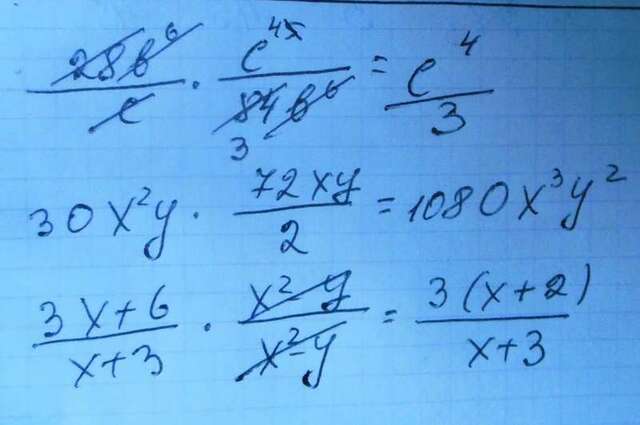 28b⁶/c · c⁴⁵/84b⁶ 3 = c⁴/3
30x²y · 72xy/2 = 1080x³y²
3x+6/x+3 · x²-y/x²-y = 3(x+2)/x+3